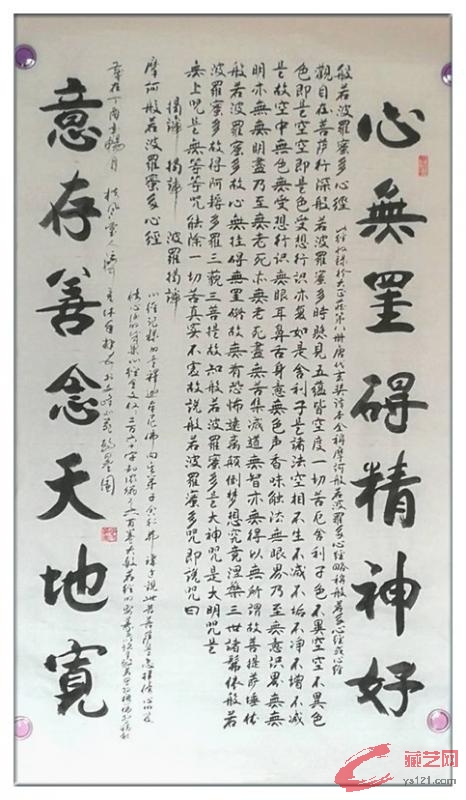 心無罣礙精神好
般若波羅蜜多心經 此經收錄於大正藏第八冊唐代玄奘譯本全稱摩訶般若波羅蜜多心經略稱般若心經或心經
觀自在菩薩行深般若波羅蜜多時照見五蘊皆空度一切苦厄舍利子色不異空空不異色
色即是空空即是色受想行識亦复如是舍利子是諸法空相不生不滅不垢不净不增不减
是故空中無色無受想行識無眼耳鼻舌身意無色声香味触法無眼界乃至無意識界無無
明亦無無明盡乃至無老死亦無老死盡無苦集滅道無智亦無得以無所得故菩提薩埵依
般若波羅蜜多故心無挂碍無罣碍故無有恐怖遠离顛倒梦想究竟涅槃三世諸佛依般若
波羅蜜多故得阿耨多羅三藐三菩提故知般若波羅蜜多是大神咒是大明咒是
無上咒是無等等咒能除一切苦真实不虛故説般若波羅蜜多咒即説咒曰
揭諦 揭諦 波羅揭諦
摩訶般若波羅蜜多心經
意存善念天地寬
藏艺网
ys121.com